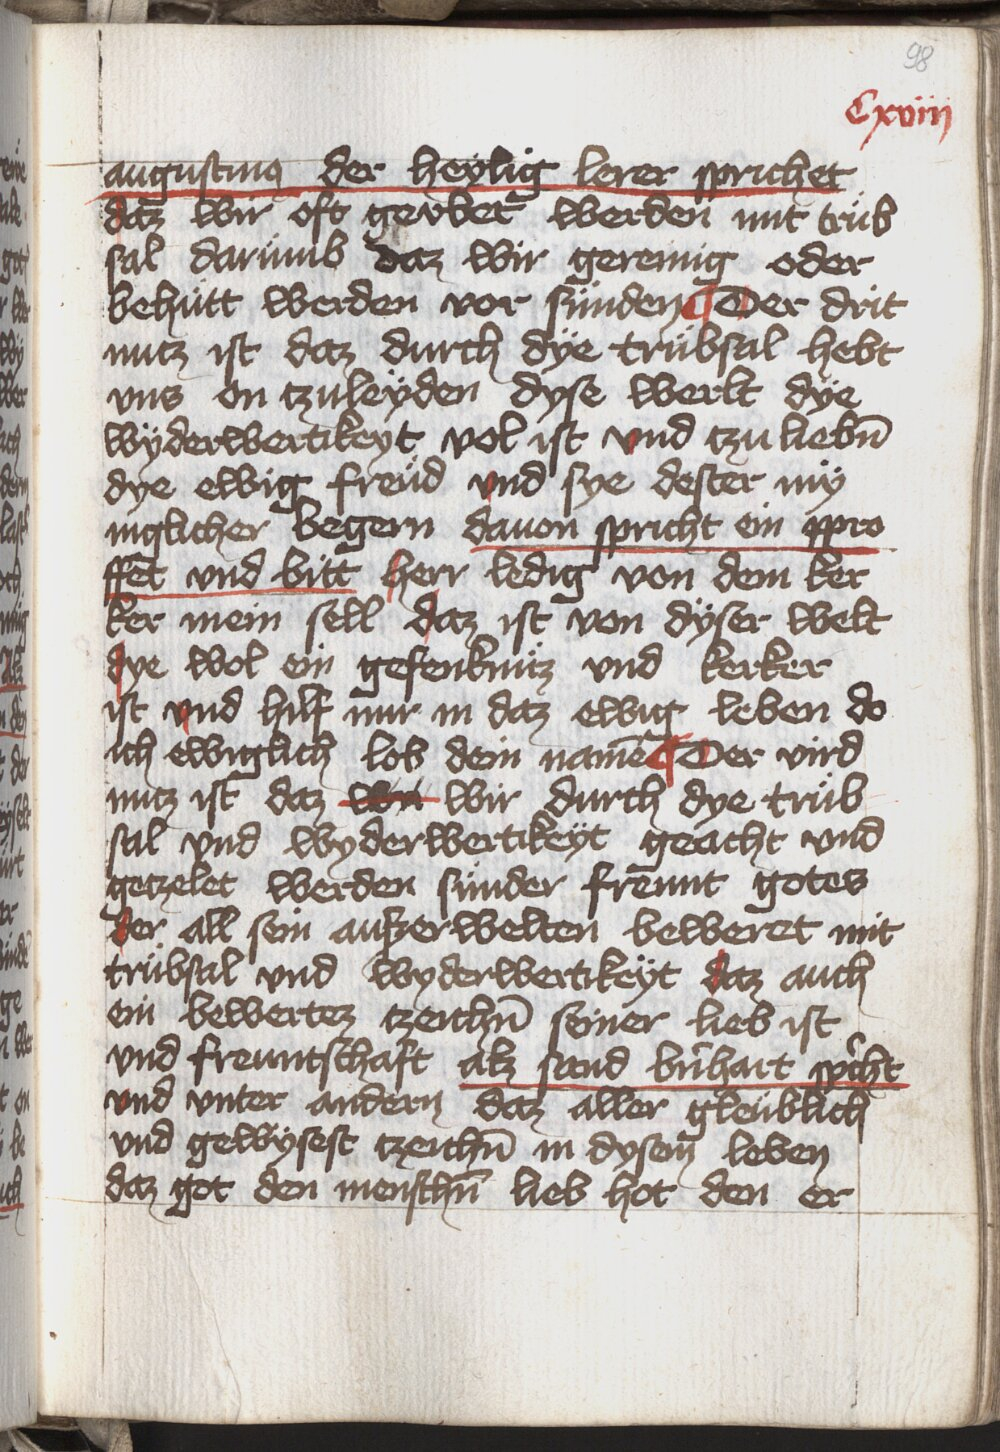 98
Cxviiij
augustinus der heylig lerer sprichet
daz wir oft geubet werden mit trüb
sal darumb daz wir gereinig oder
behütt werden vor sünden ¶ Der drit
nutz ist daz durch dÿe trübsal hebt
uns on tzuleÿden dyse werlt dÿe
wÿderwertikeyt vol ist und tzu liebn̄
dye ewig freüd und sye dester mÿ
niglicher begern dauon spricht ein ppro
ffet und bitt herr ledig von dem ker
ker mein sell daz ist von dÿser welt
dye wol ein gefenknüz und kerker
ist und hilf mir in daz ewig leben do
ich ewiglich lob dein namē ¶ Der vird
nutz ist daz wir durch dye trüb
sal und wyderwertikeÿt geacht und
getzelet werden sunder freunt gotes
der all sein außerwelten beweret mit
trübsal und wyderwertikeÿt daz auch
ein bewertez tzeichn̄ seiner lieb ist
und freuntschaft alz sand bn̄hart spͥcht
und unter andern daz aller gleüblich
und gewÿsest tzeichn̄ in dysem leben
daz got den menschn̄ lieb hot den er